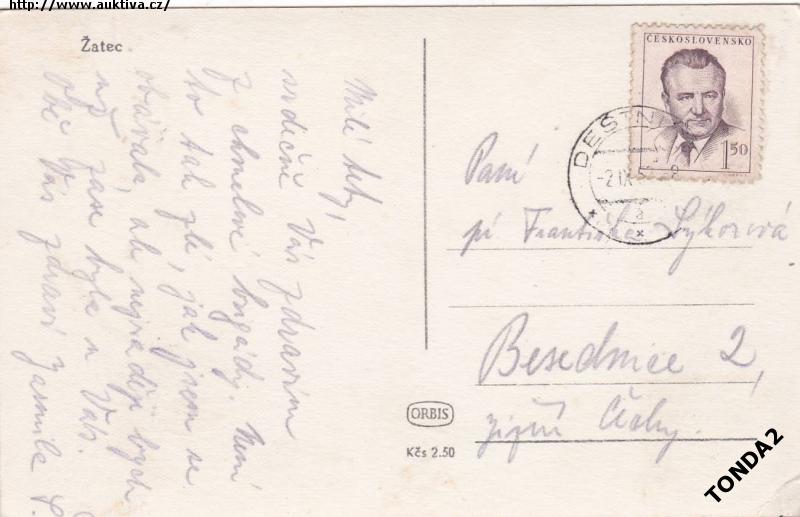 http://www.auktiva.cz/
Žatec
Milé tety,
srdečně Vás zdravím
z chmelové brigády. Není
to tak zlé, jak jsem se
obávala, ale nejraději bych
už zase byla u Vás.
Obě Vás zdraví Jarmila
ČESKOSLOVENSKO
1.50
DEŠTN
-2.IX.5
a
Paní
pí Františka Sýkorová
Besednice 2,
jižní Čechy.
ORBIS
Kčs 2.50
TONDA2